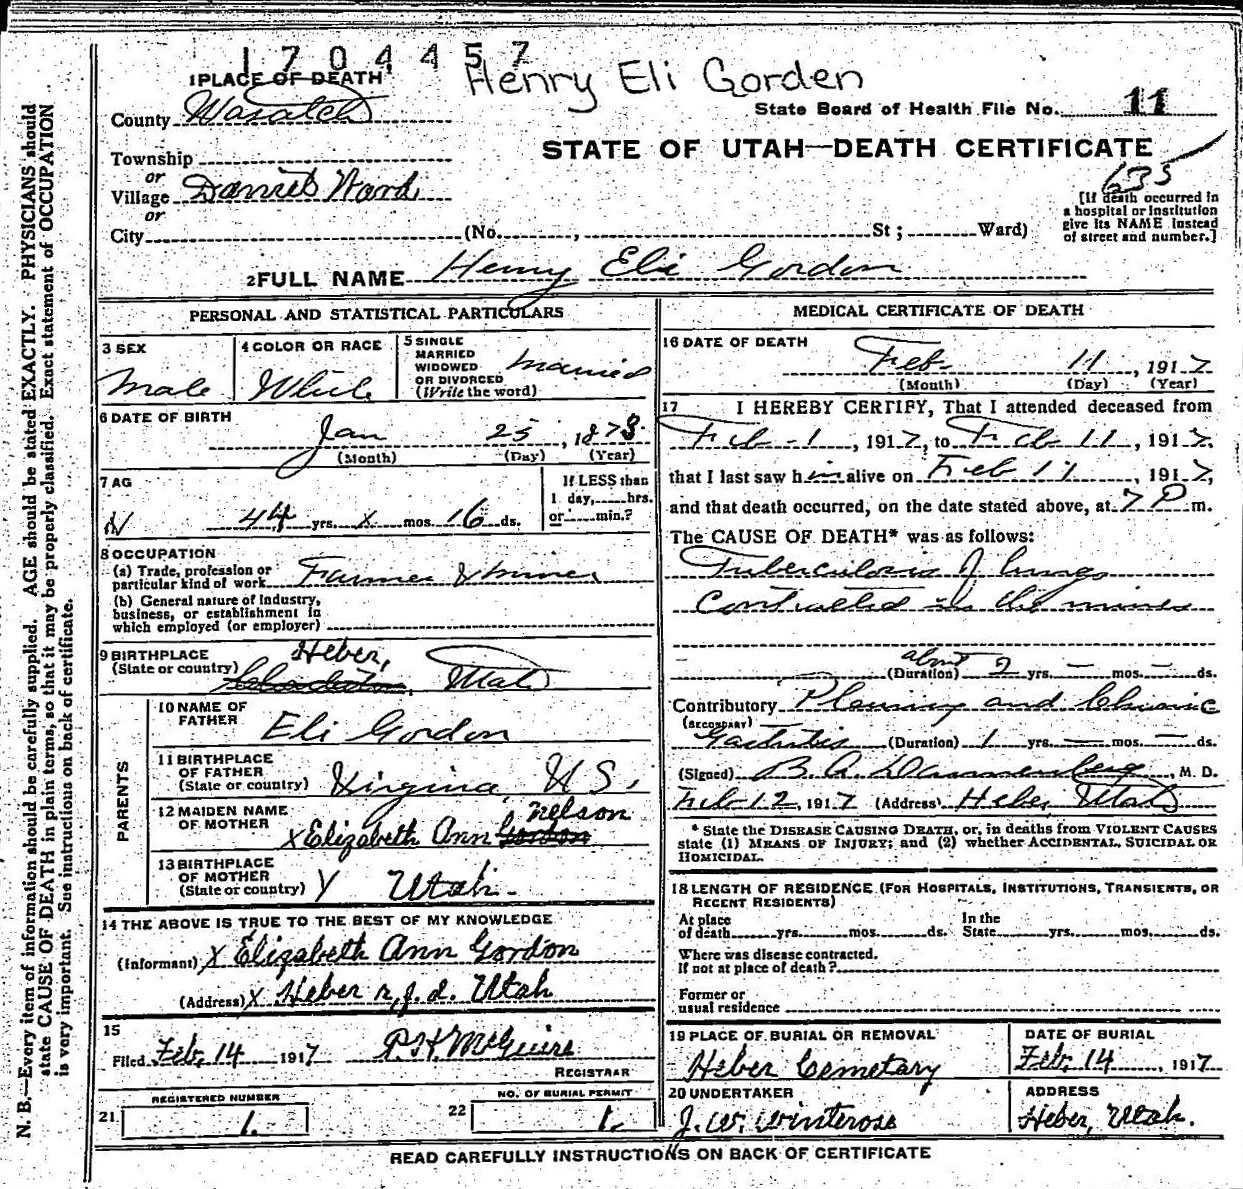 1704457
Henry Eli Gorden
1 PLACE OF DEATH
State Board of Health File No. 11
County Wasatch
STATE OF UTAH—DEATH CERTIFICATE
635
Township
or
Village Daniels Ward
or
City (No. , St ; Ward)
[If death occurred in
a hospital or institution
give its NAME instead
of street and number.]
2 FULL NAME Henry Eli Gordon
PERSONAL AND STATISTICAL PARTICULARS
3 SEX
Male
4 COLOR OR RACE
White
5 SINGLE
MARRIED
WIDOWED
OR DIVORCED
(Write the word)
Married
6 DATE OF BIRTH
Jan 25, 1873
(Month) (Day) (Year)
7 AG
44 yrs. x mos. 16 ds.
If LESS than
1 day, hrs.
or min.?
8 OCCUPATION
(a) Trade, profession or
particular kind of work Farmer & miner
(b) General nature of industry,
business, or establishment in
which employed (or employer)
9 BIRTHPLACE
(State or country) Heber, Utah
PARENTS
10 NAME OF
FATHER Eli Gordon
11 BIRTHPLACE
OF FATHER
(State or country) Virginia, U S.
12 MAIDEN NAME
OF MOTHER x Elizabeth Ann Gordon Nelson
13 BIRTHPLACE
OF MOTHER
(State or country) Y Utah.
14 THE ABOVE IS TRUE TO THE BEST OF MY KNOWLEDGE
(Informant) X Elizabeth Ann Gordon
(Address) X Heber r,f.d. Utah
15
Filed Feb, 14 1917 P. H. McGuire
REGISTRAR
REGISTERED NUMBER
21 1.
NO. OF BURIAL PERMIT
22 1.
MEDICAL CERTIFICATE OF DEATH
16 DATE OF DEATH
Feb. 11, 1917
(Month) (Day) (Year)
17 I HEREBY CERTIFY, That I attended deceased from
Feb - 1, 1917, to Feb 11, 1917,
that I last saw him alive on Feb 11, 1917,
and that death occurred, on the date stated above, at 7 P m.
The CAUSE OF DEATH* was as follows:
Tuberculosis of lungs
Contracted in the mines
about
(Duration) 2 yrs. — mos. — ds.
Contributory Pleurisy and Chronic
(SECONDARY)
Gastritis (Duration) 1 yrs. — mos. — ds.
(Signed) B. A. Dannenberg, M. D.
Feb 12, 1917 (Address) Heber Utah
* State the DISEASE CAUSING DEATH, or, in deaths from VIOLENT CAUSES
state (1) MEANS OF INJURY; and (2) whether ACCIDENTAL, SUICIDAL OR
HOMICIDAL.
18 LENGTH OF RESIDENCE (FOR HOSPITALS, INSTITUTIONS, TRANSIENTS, OR
RECENT RESIDENTS)
At place
of death yrs. mos. ds.
In the
State yrs. mos. ds.
Where was disease contracted.
If not at place of death?
Former or
usual residence
19 PLACE OF BURIAL OR REMOVAL
Heber Cemetary
DATE OF BURIAL
Feb, 14, 1917
20 UNDERTAKER
J. W. Winterose
ADDRESS
Heber, Utah.
READ CAREFULLY INSTRUCTIONS ON BACK OF CERTIFICATE
N. B.—Every item of information should be carefully supplied. AGE should be stated EXACTLY. PHYSICIANS should
state CAUSE OF DEATH in plain terms, so that it may be properly classified. Exact statement of OCCUPATION
is very important. See instructions on back of certificate.